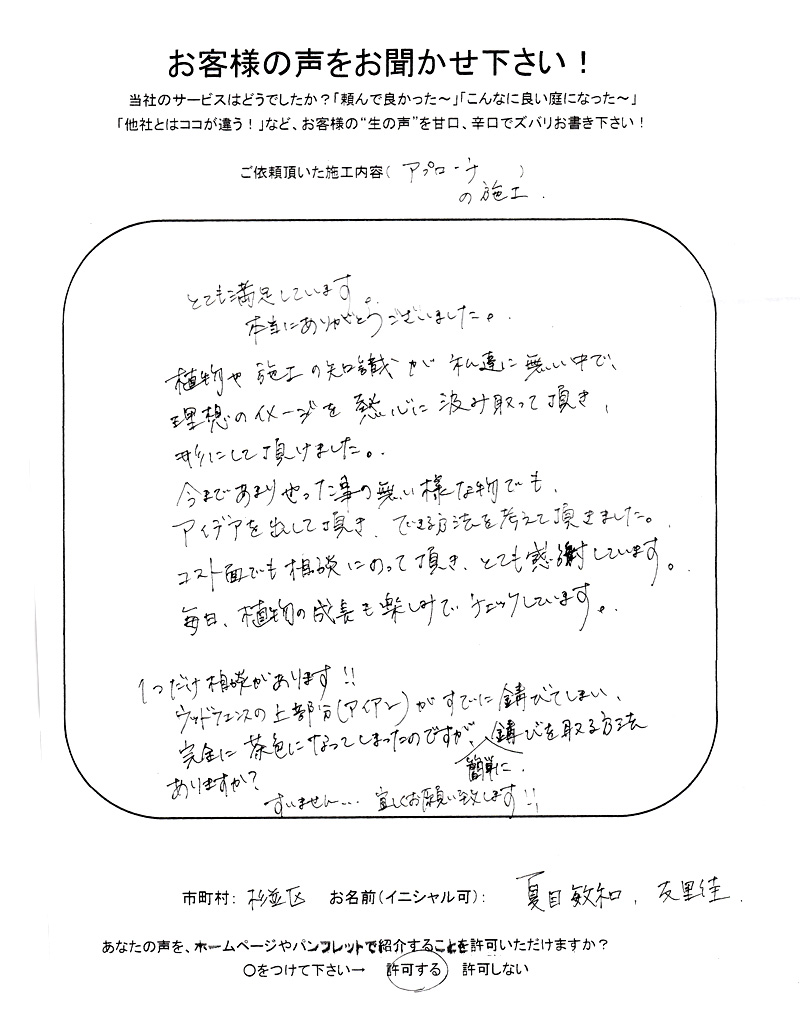 お客様の声をお聞かせ下さい！
当社のサービスはどうでしたか？「頼んで良かった～」「こんなに良い庭になった～」
「他社とはココが違う！」など、お客様の“生の声”を甘口、辛口でズバリお書き下さい！
ご依頼頂いた施工内容（アプローチ）
の施工.
とても満足しています。
本当にありがとうございました。
植物や施工の知識が私達に無い中で、
理想のイメージを熱心に汲み取って頂き、
形にして頂けました。
今まであまりやった事の無い様な物でも、
アイデアを出して頂き、できる方法を考えて頂きました。
コスト面でも相談にのって頂き、とても感謝しています。
毎日、植物の成長も楽しみでチェックしています。
1つだけ相談があります!!
ウッドフェンスの上部分(アイアン)がすでに錆びてしまい、
完全に茶色になってしまったのですが、錆びを取る方法
簡単に
ありますか？
すいません… 宜しくお願い致します!!
市町村：杉並区 お名前（イニシャル可）：夏目敏和、友里佳
あなたの声を、ホームページやパンフレットで紹介することを許可いただけますか？
○をつけて下さい→ 許可する 許可しない